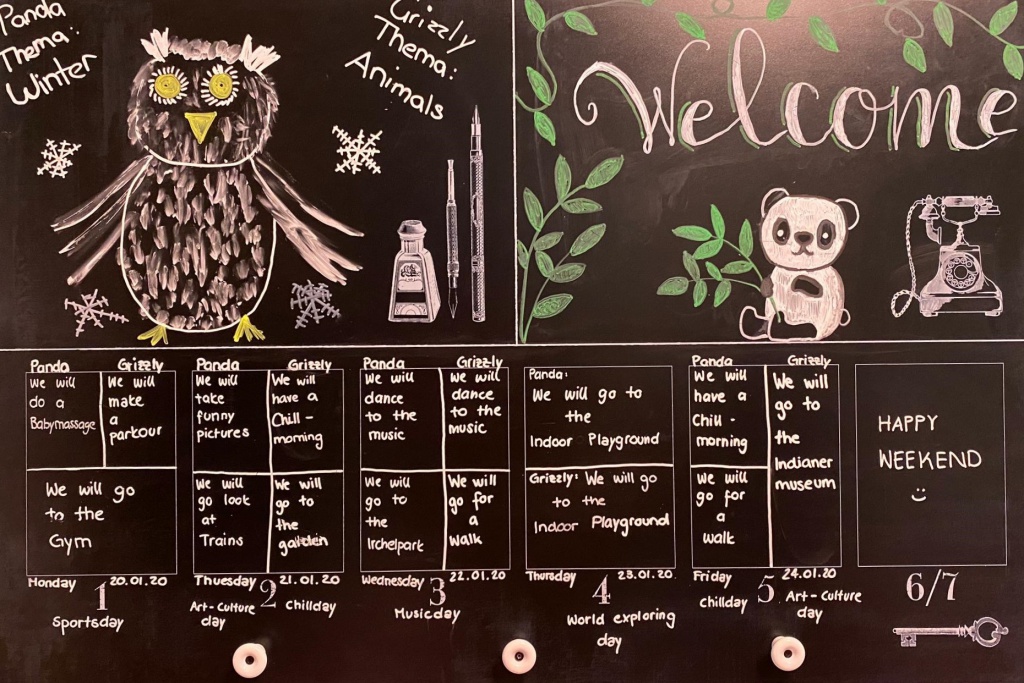 Panda
Thema:
Winter
Grizzly
Thema:
Animals
Welcome
Panda
We will
do a
Babymassage
Grizzly
We will
make
a
parkour
We will go
to the
Gym
Monday 1 20.01.20
Sportsday
Panda
We will
take
funny
pictures
Grizzly
We will
have a
Chill-
morning
We will
go look
at
Trains
We will
go to
the
garden
Thuesday 2 21.01.20
Art-Culture
day
Chillday
Panda
We will
dance
to the
music
Grizzly
We will
dance
to the
music
We will
go to
the
Irchelpark
We will
go for
a
walk
Wednesday 3 22.01.20
Musicday
Panda:
We will go to
the
Indoor Playground
Grizzly: We will go
to the
Indoor Playground
Thursday 4 23.01.20
World exploring
day
Panda
We will
have a
Chill-
morning
Grizzly
We will
go to
the
Indianer
museum
We will
go for
a
walk
Friday 5 24.01.20
chillday
Art-Culture
day
HAPPY
WEEKEND
:)
6/7